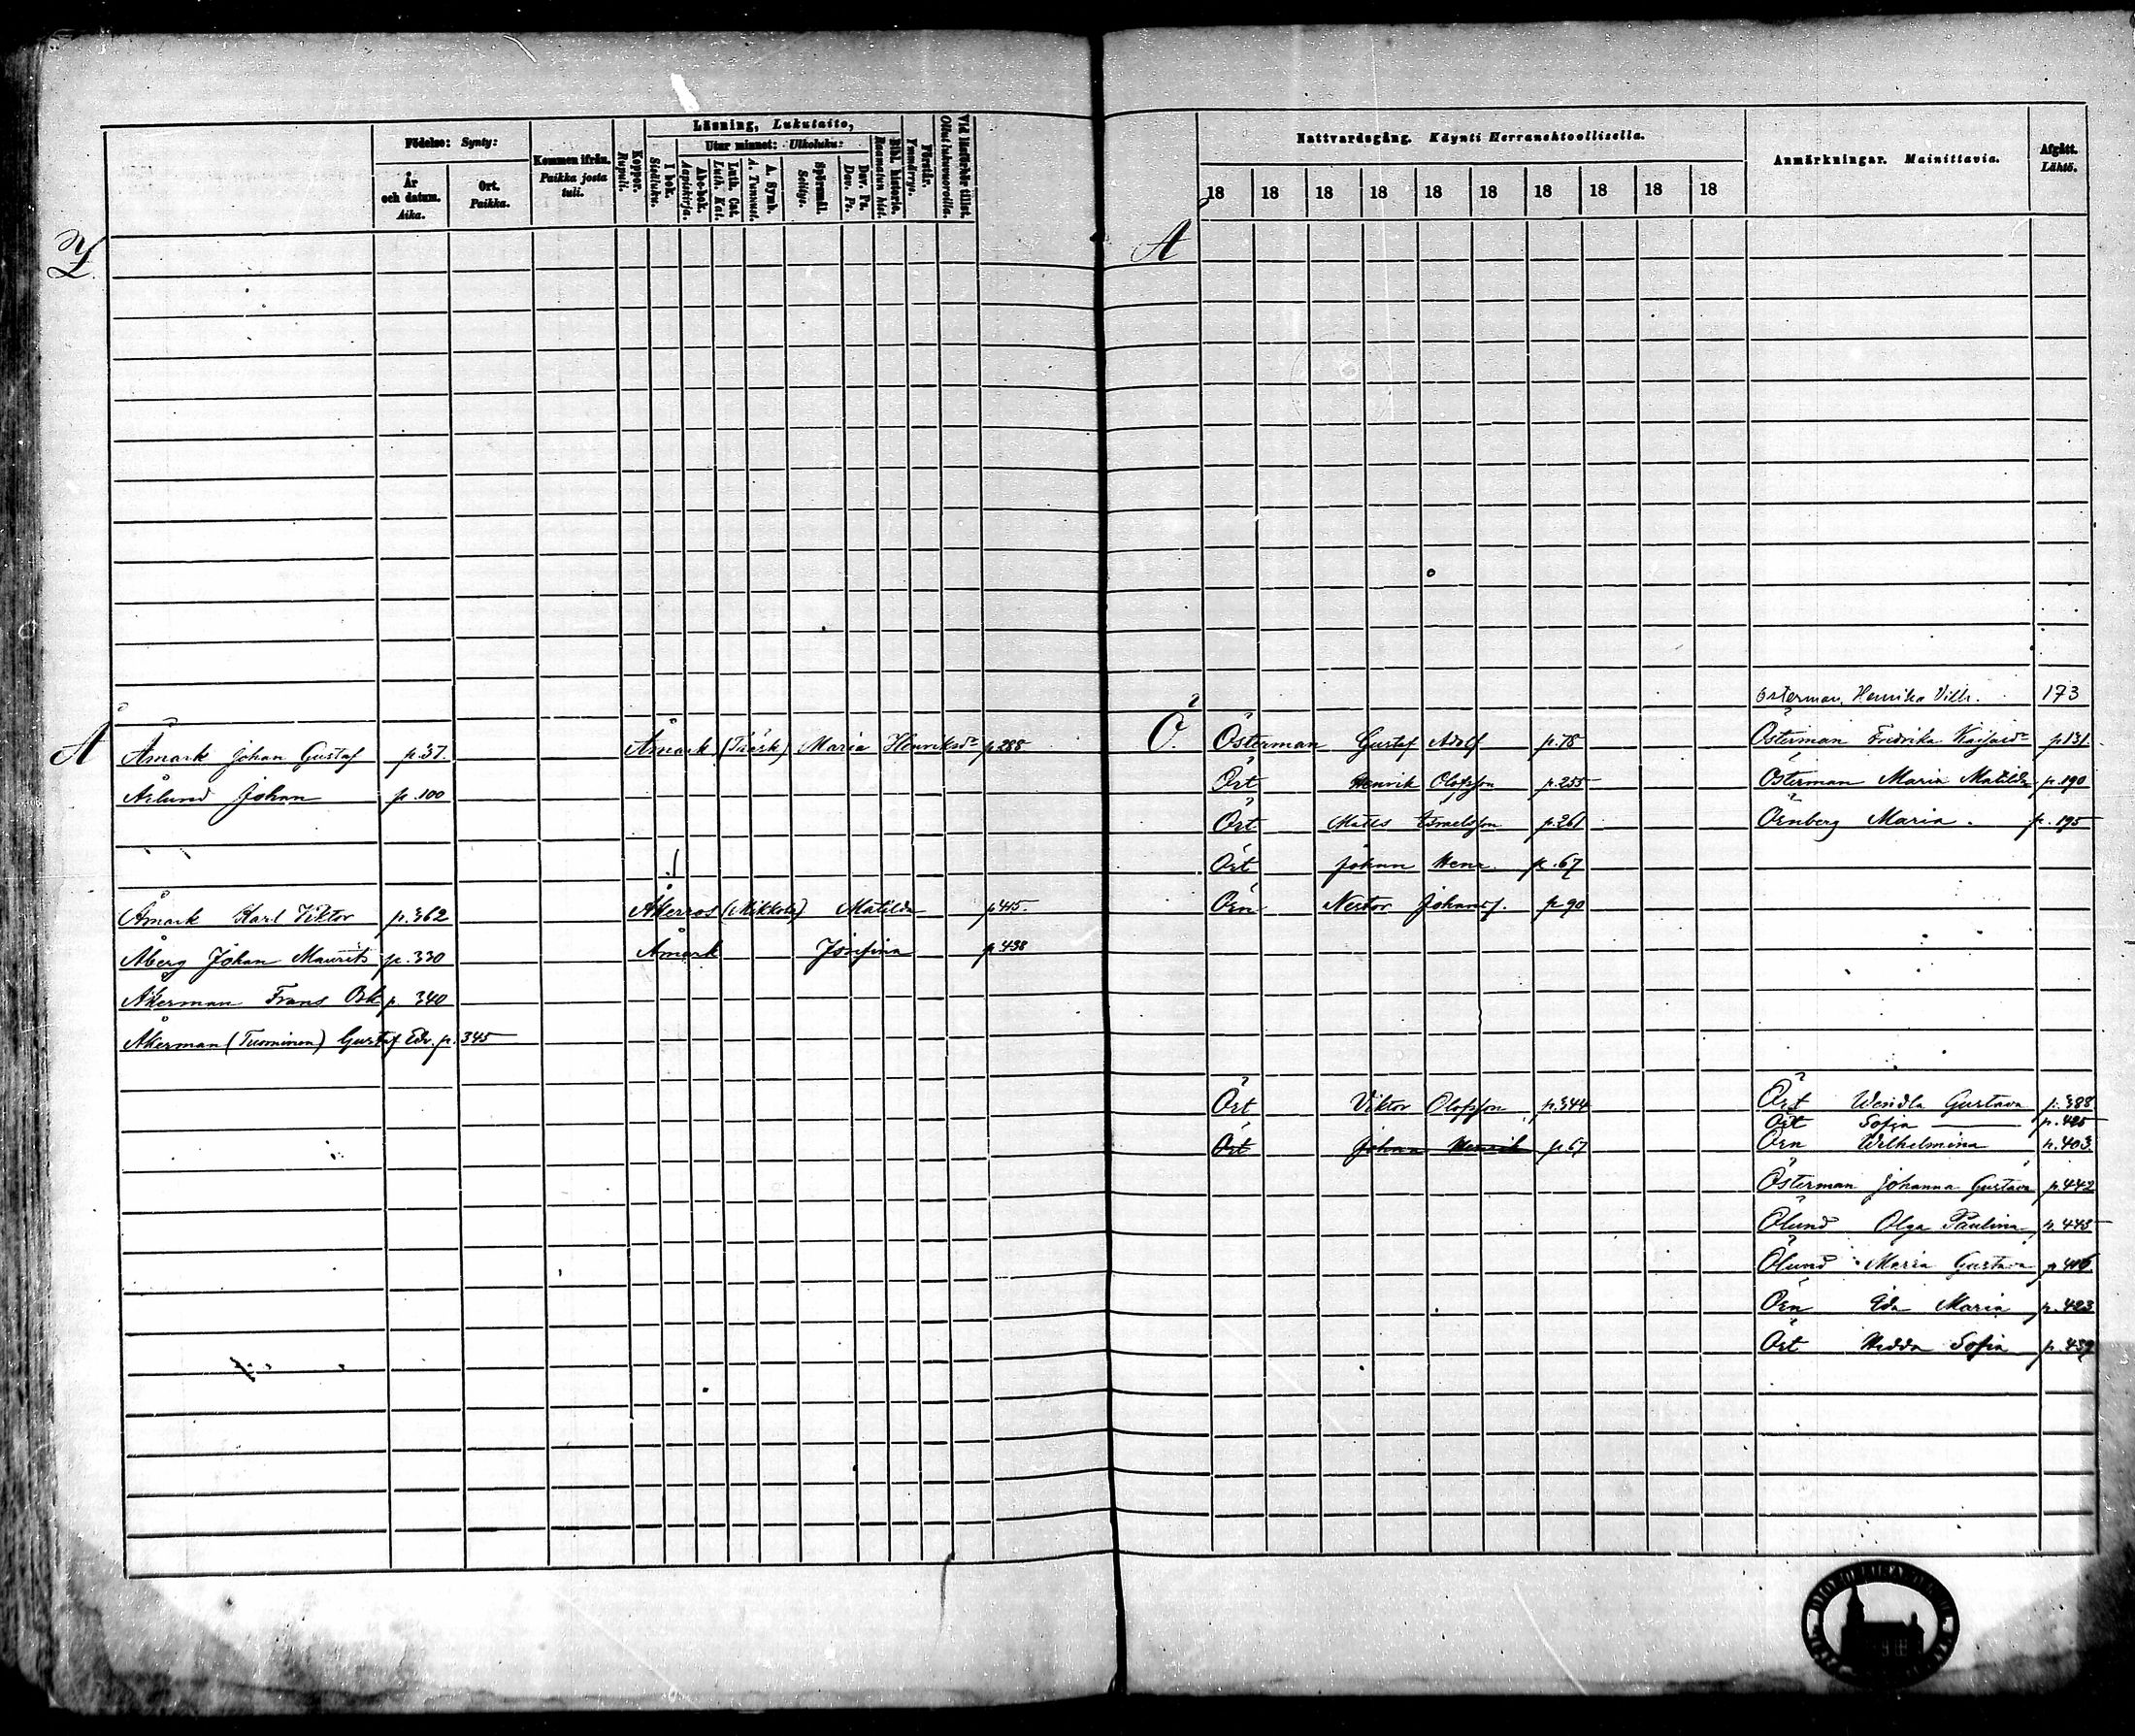 Födelse: Synty:
År och datum. Aika.
Ort. Paikka.
Kommen ifrån. Paikka josta tuli.
Koppor. Rupuli.
Läsning, Lukutaito,
I bok. Sisäluku.
Utur minnet: Ulkoluku:
Abc-bok. Aapiskirja.
Luth. Cat. Luth. Kat.
A. Symb. A. Tunnust.
Spörsmål. Selitys.
Dav. Ps. Dav. Ps.
Bibl. historie. Raamatun hist.
Förstår. Ymmärrys.
Vid läsförhör tillst. Ollut lukuvuorolla.
Y.
Å
Åmark Johan Gustaf p. 37.
Åslund Johan p. 100
Åmark Karl Viktor p. 362
Åberg Johan Maurits p. 330
Åkerman Frans Osk p. 340
Åkerman (Tuominen) Gustaf Edv. p. 345
Åmark (Träsk) Maria Henriksdr p 288
Åkerros (Mikkola) Matilda p 415.
Åmark Josefina p 438
Nattvardsgång. Käynti Herranehtoollisella.
18 18 18 18 18 18 18 18 18 18
Anmärkningar. Mainittavia.
Afgått. Lähtö.
A
Ö.
Österman Gustaf Adolf p. 78
Öst Henrik Olofsson p. 255
Öst Matts Israelsson p. 261
Öst Johan Henr. p. 67
Örn Nestor Johansf. p 90
Öst Viktor Olofsson p. 344
Öst Johan Henrik p 67
Österman, Henrika Vilh. 173
Österman Fredrika p 131
Österman Maria Matilda p. 190
Örnberg Maria. p. 195
Öst Wendla Gustava p. 388
Öst Sofia p. 425
Örn Wilhelmina p. 403.
Österman Johanna Gustava p 442
Ölund Olga Paulina p. 445
Ölund Maria Gustava p 446
Örn Eda Maria p. 423
Öst Hedda Sofia p. 439